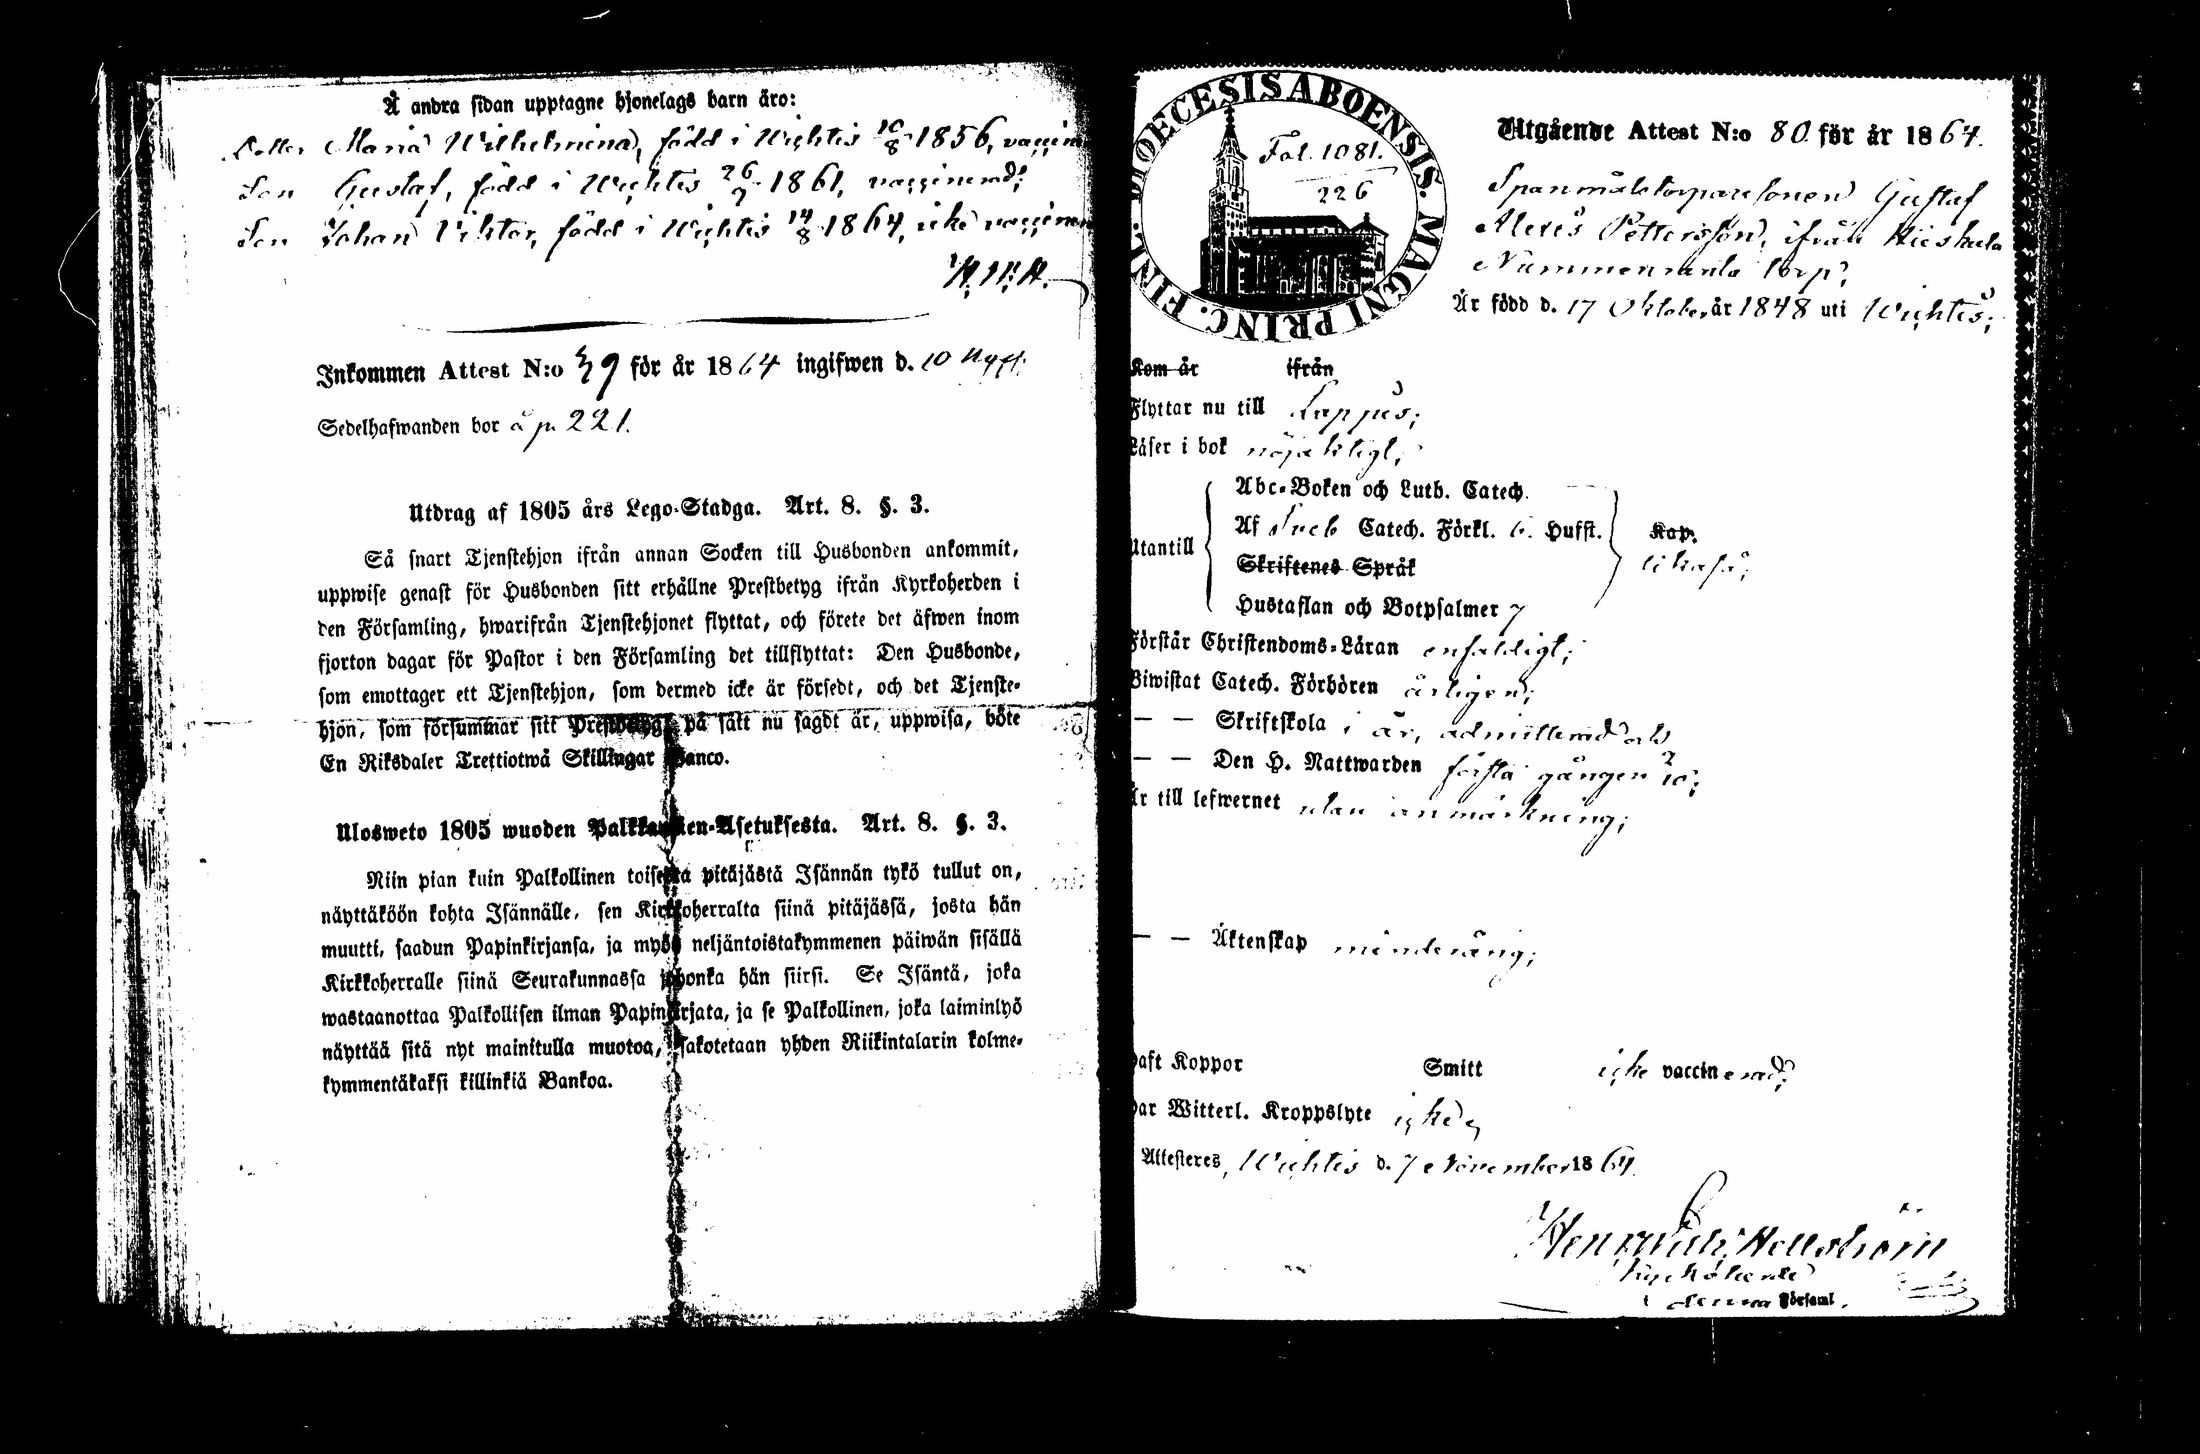 Å andra sidan upptagne hjonelags barn äro:
Dotter Maria Wilhelmina, född i Wichtis 10/8 1856, vaccin
Son Gustaf, född i Wichtis 26/7 1861, vaccinerad;
Son Johan Viktor, född i Wichtis 14/8 1864, icke vaccine
H. H.
Inkommen Attest N:o 49 för år 1864 ingifwen d. 10
Sedelhafwanden bor å p. 221.
Utdrag af 1805 års Lego-Stadga. Art. 8. §. 3.
Så snart Tjenstehjon ifrån annan Socken till Husbonden ankommit,
uppwise genast för Husbonden sitt erhållne Prestbetyg ifrån Kyrkoherden i
den Församling, hwarifrån Tjenstehjonet flyttat, och förete det äfwen inom
fjorton dagar för Pastor i den Församling det tillflyttat: Den Husbonde,
som emottager ett Tjenstehjon, som dermed icke är försedt, och det Tjenste-
hjon, som försummar sitt Prestbetyg på sätt nu sagdt är, uppwisa, böte
En Riksdaler Trettiotwå Skillingar Banco.
Ulosweto 1805 wuoden Palkkausten-Asetuksesta. Art. 8. §. 3.
Niin pian kuin Palkollinen toisesta pitäjästä Isännän tykö tullut on,
näyttäköön kohta Isännälle, sen Kirkkoherralta siinä pitäjässä, josta hän
muutti, saadun Papinkirjansa, ja myös neljäntoistakymmenen päiwän sisällä
Kirkkoherralle siinä Seurakunnassa johonka hän siirsi. Se Isäntä, joka
wastaanottaa Palkollisen ilman Papinkirjata, ja se Palkollinen, joka laiminlyö
näyttää sitä nyt mainitulla muotoa, sakotetaan yhden Riikintalarin kolme-
kymmentäkaksi killinkiä Bankoa.
DIOECESIS ABOENSIS. MAGNI PRINC. FINL.
Fol. 1081.
226
Utgående Attest N:o 80 för år 1864.
Spanmålstorparesonen Gustaf
Alexis Pettersson, ifrån Hiiskula
Nummenranta torp;
Är född d. 17 Oktober år 1848 uti Wichtis;
Kom år ifrån
Flyttar nu till Lappus;
Läser i bok nöjaktigt;
Utantill
Abc-Boken och Luth. Catech.
Af Sveb Catech. Förkl. 6. Hufst.
Skriftenes Språk
Hustaflan och Botpsalmer 7
Kap.
likaså;
Förstår Christendoms-Läran enfaldigt;
Biwistat Catech. Förhören årligen;
— — Skriftskola i år, admitterad och
— — Den H. Nattwarden första gången
Är till lefwernet utan anmärkning;
— — Äktenskap minderårig;
Haft Koppor Smitt icke vaccinerad;
Har Witterl. Kroppslyte icke,
Attesteres, Wichtis d. 7 November 1864.
Henrik Hellström
Kyrkoherde
i denna Församl.